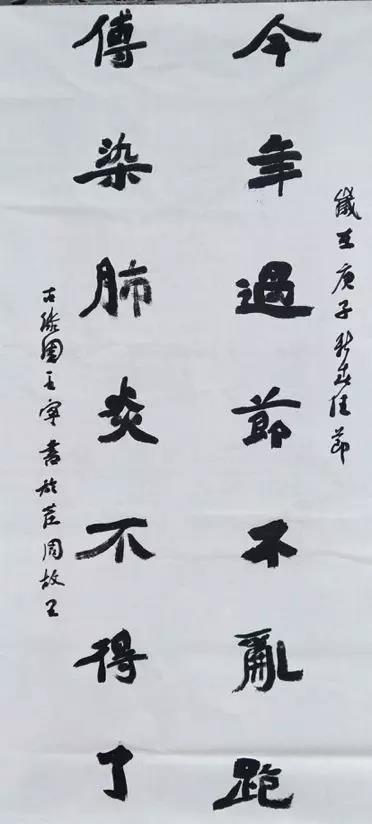 歲在庚子新春佳節
今年過節不亂跑
傳染肺炎不得了
古滕國王寧書於莊周故里